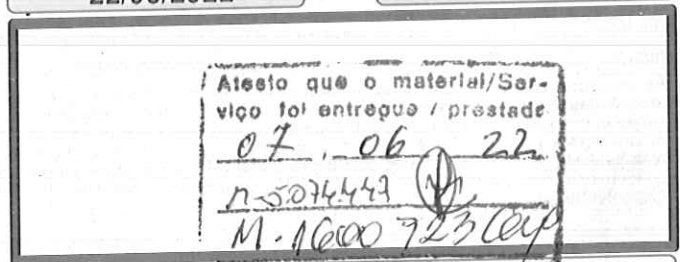 Atesto que o material/Ser-
viço foi entregue / prestado
07 . 06 22
n-5074447
M. 1600 923